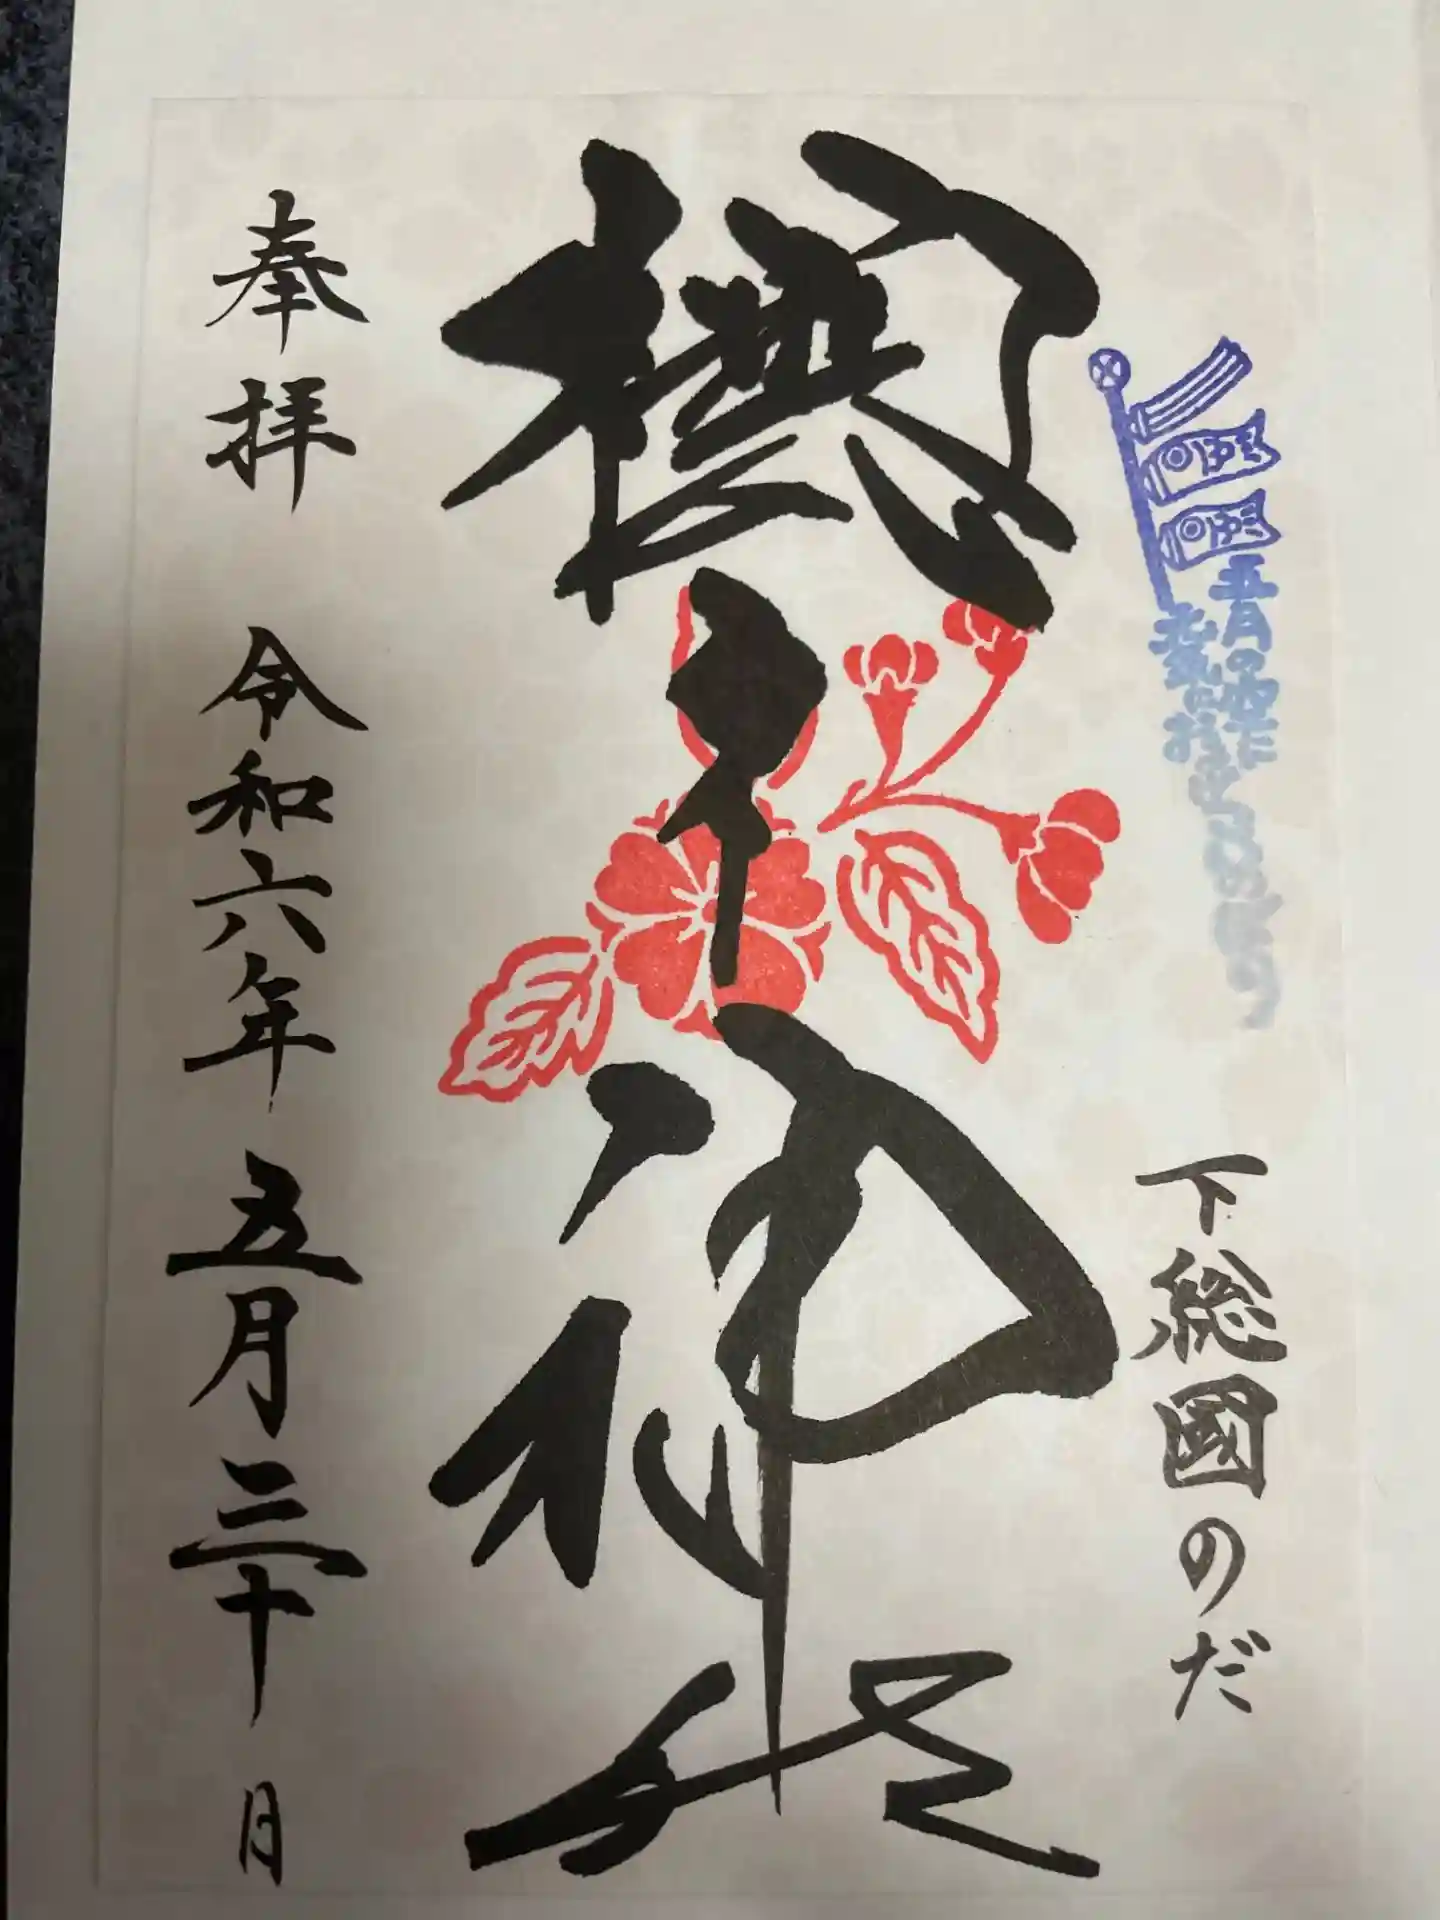 五月の空だ
元気に
こいのぼり
下総國のだ
櫻木神社
奉拝 令和六年五月三十日